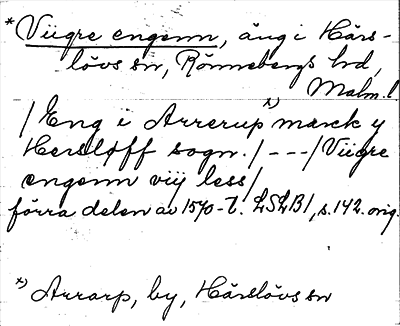 * Viigre engenn, äng i Härs-
lövs sn, Rönnebergs hd,
Malm. l
/Eng i Arrerup x) marck y
Hersløff sogn./ - - - /Viigre
engenn viij less/
förra delen av 1570-t. LSLB1, s. 142. orig.
x) Arrarp, by, Härslövs sn